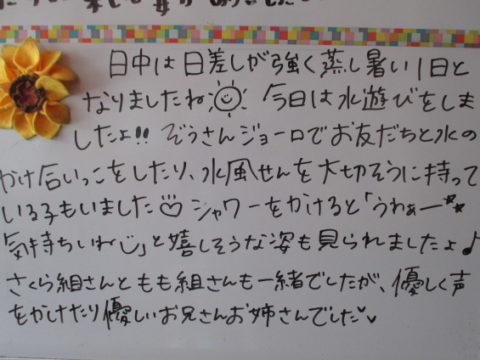 日中は日差しが強く蒸し暑い1日と
なりましたね 今日は水遊びをしま
したよ!! ぞうさんジョーロでお友だちと水の
かけ合いっこをしたり、水風せんを大切そうに持って
いる子もいました♡ シャワーをかけると「うわぁー**
気持ちいね」と嬉しそうな姿も見られましたよ♪
さくら組さんともも組さんも一緒でしたが、優しく声
をかけたり優しいお兄さんお姉さんでした♡♡